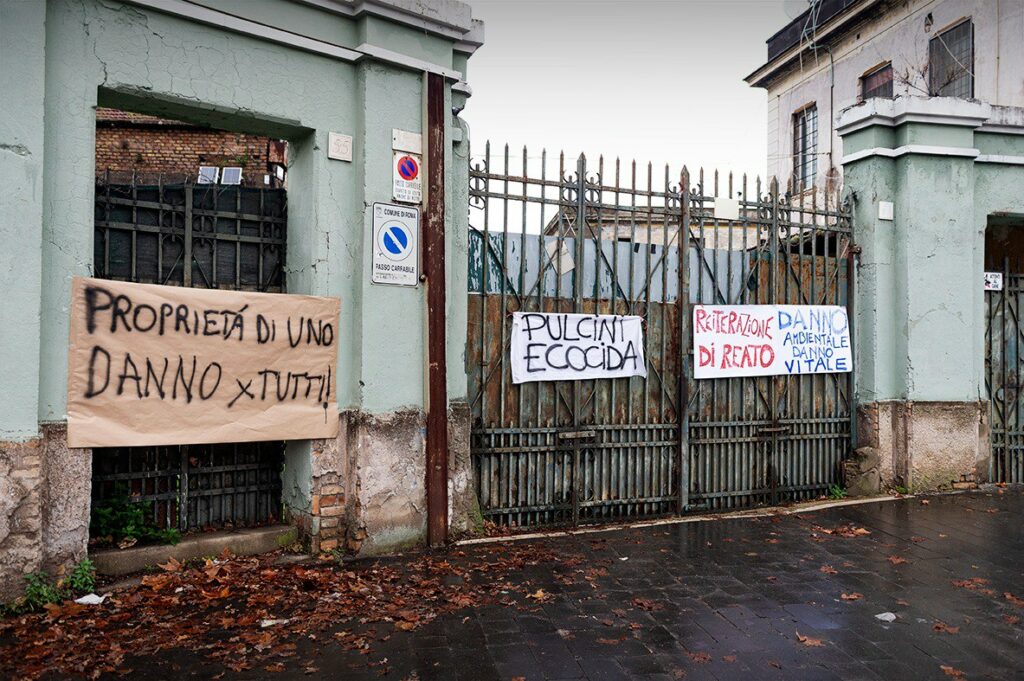 PROPRIETÁ DI UNO
DANNO x TUTTI!
55
COMUNE DI ROMA
PASSO CARRABILE
PULCINI
ECOCIDA
REITERAZIONE
DI REATO
DANNO
AMBIENTALE
DANNO
VITALE